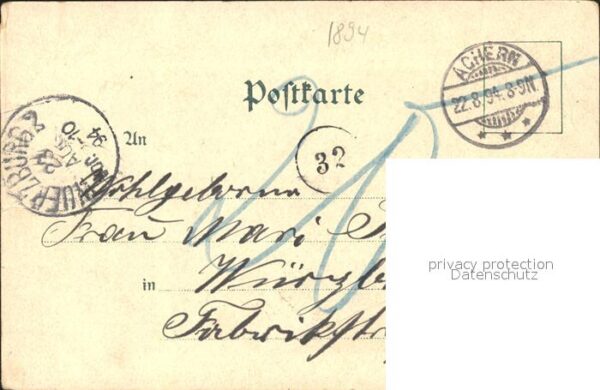 1894
Postkarte
ACHERN
22.8.94.8-9N.
WUERZBURG 2
23
AUG
VOR 9-10
94
An
32
Wohlgeborne
Frau Mari
in Würzb
Fabrikstr
privacy protection
Datenschutz